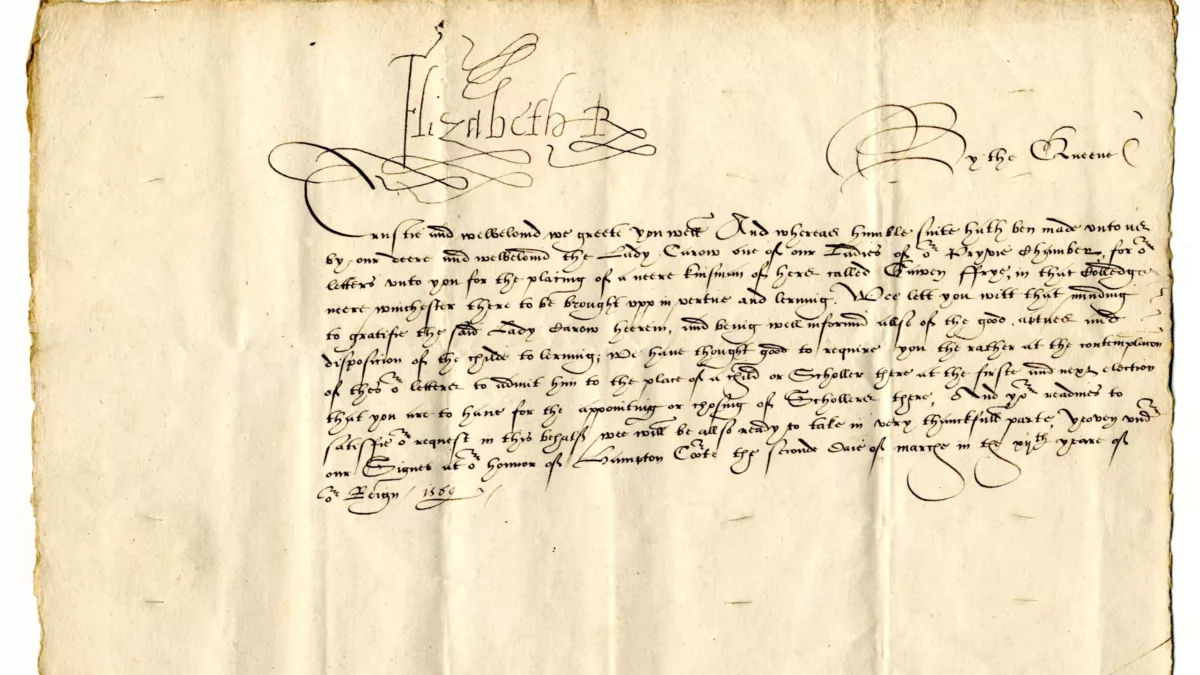 Elizabeth R
By the Queene
Trustie and welbeloved we greete you well And whereas humble suite hath ben made unto us
by our deere and welbeloved the Lady Carow one of our Ladies of or Pryvie Chamber, for or
letters unto you for the placing of a neere kinsman of hers called ffrye, in that Colledge
neere winchester there to be brought upp in vertue and lerning. Wee lett you witt that minding
to gratifie the said Lady Carow heerein, and being well informid allso of the good aptnes and
disposition of the childe to lerning; We have thought good to require you the rather at the contemplacon
of thes or letters to admit him to the place of a Child or Scholler there at the firste and next election
that you are to have for the appointing or chosing of Schollers there, And yor readines to
satisfie or request in this behalf wee will be allso ready to take in very thanckfull parte, Yeoven undr
our Signet at or honnor of Hampton Corte the seconde Daie of marche in the xijth yeare of
or Reign / 1569